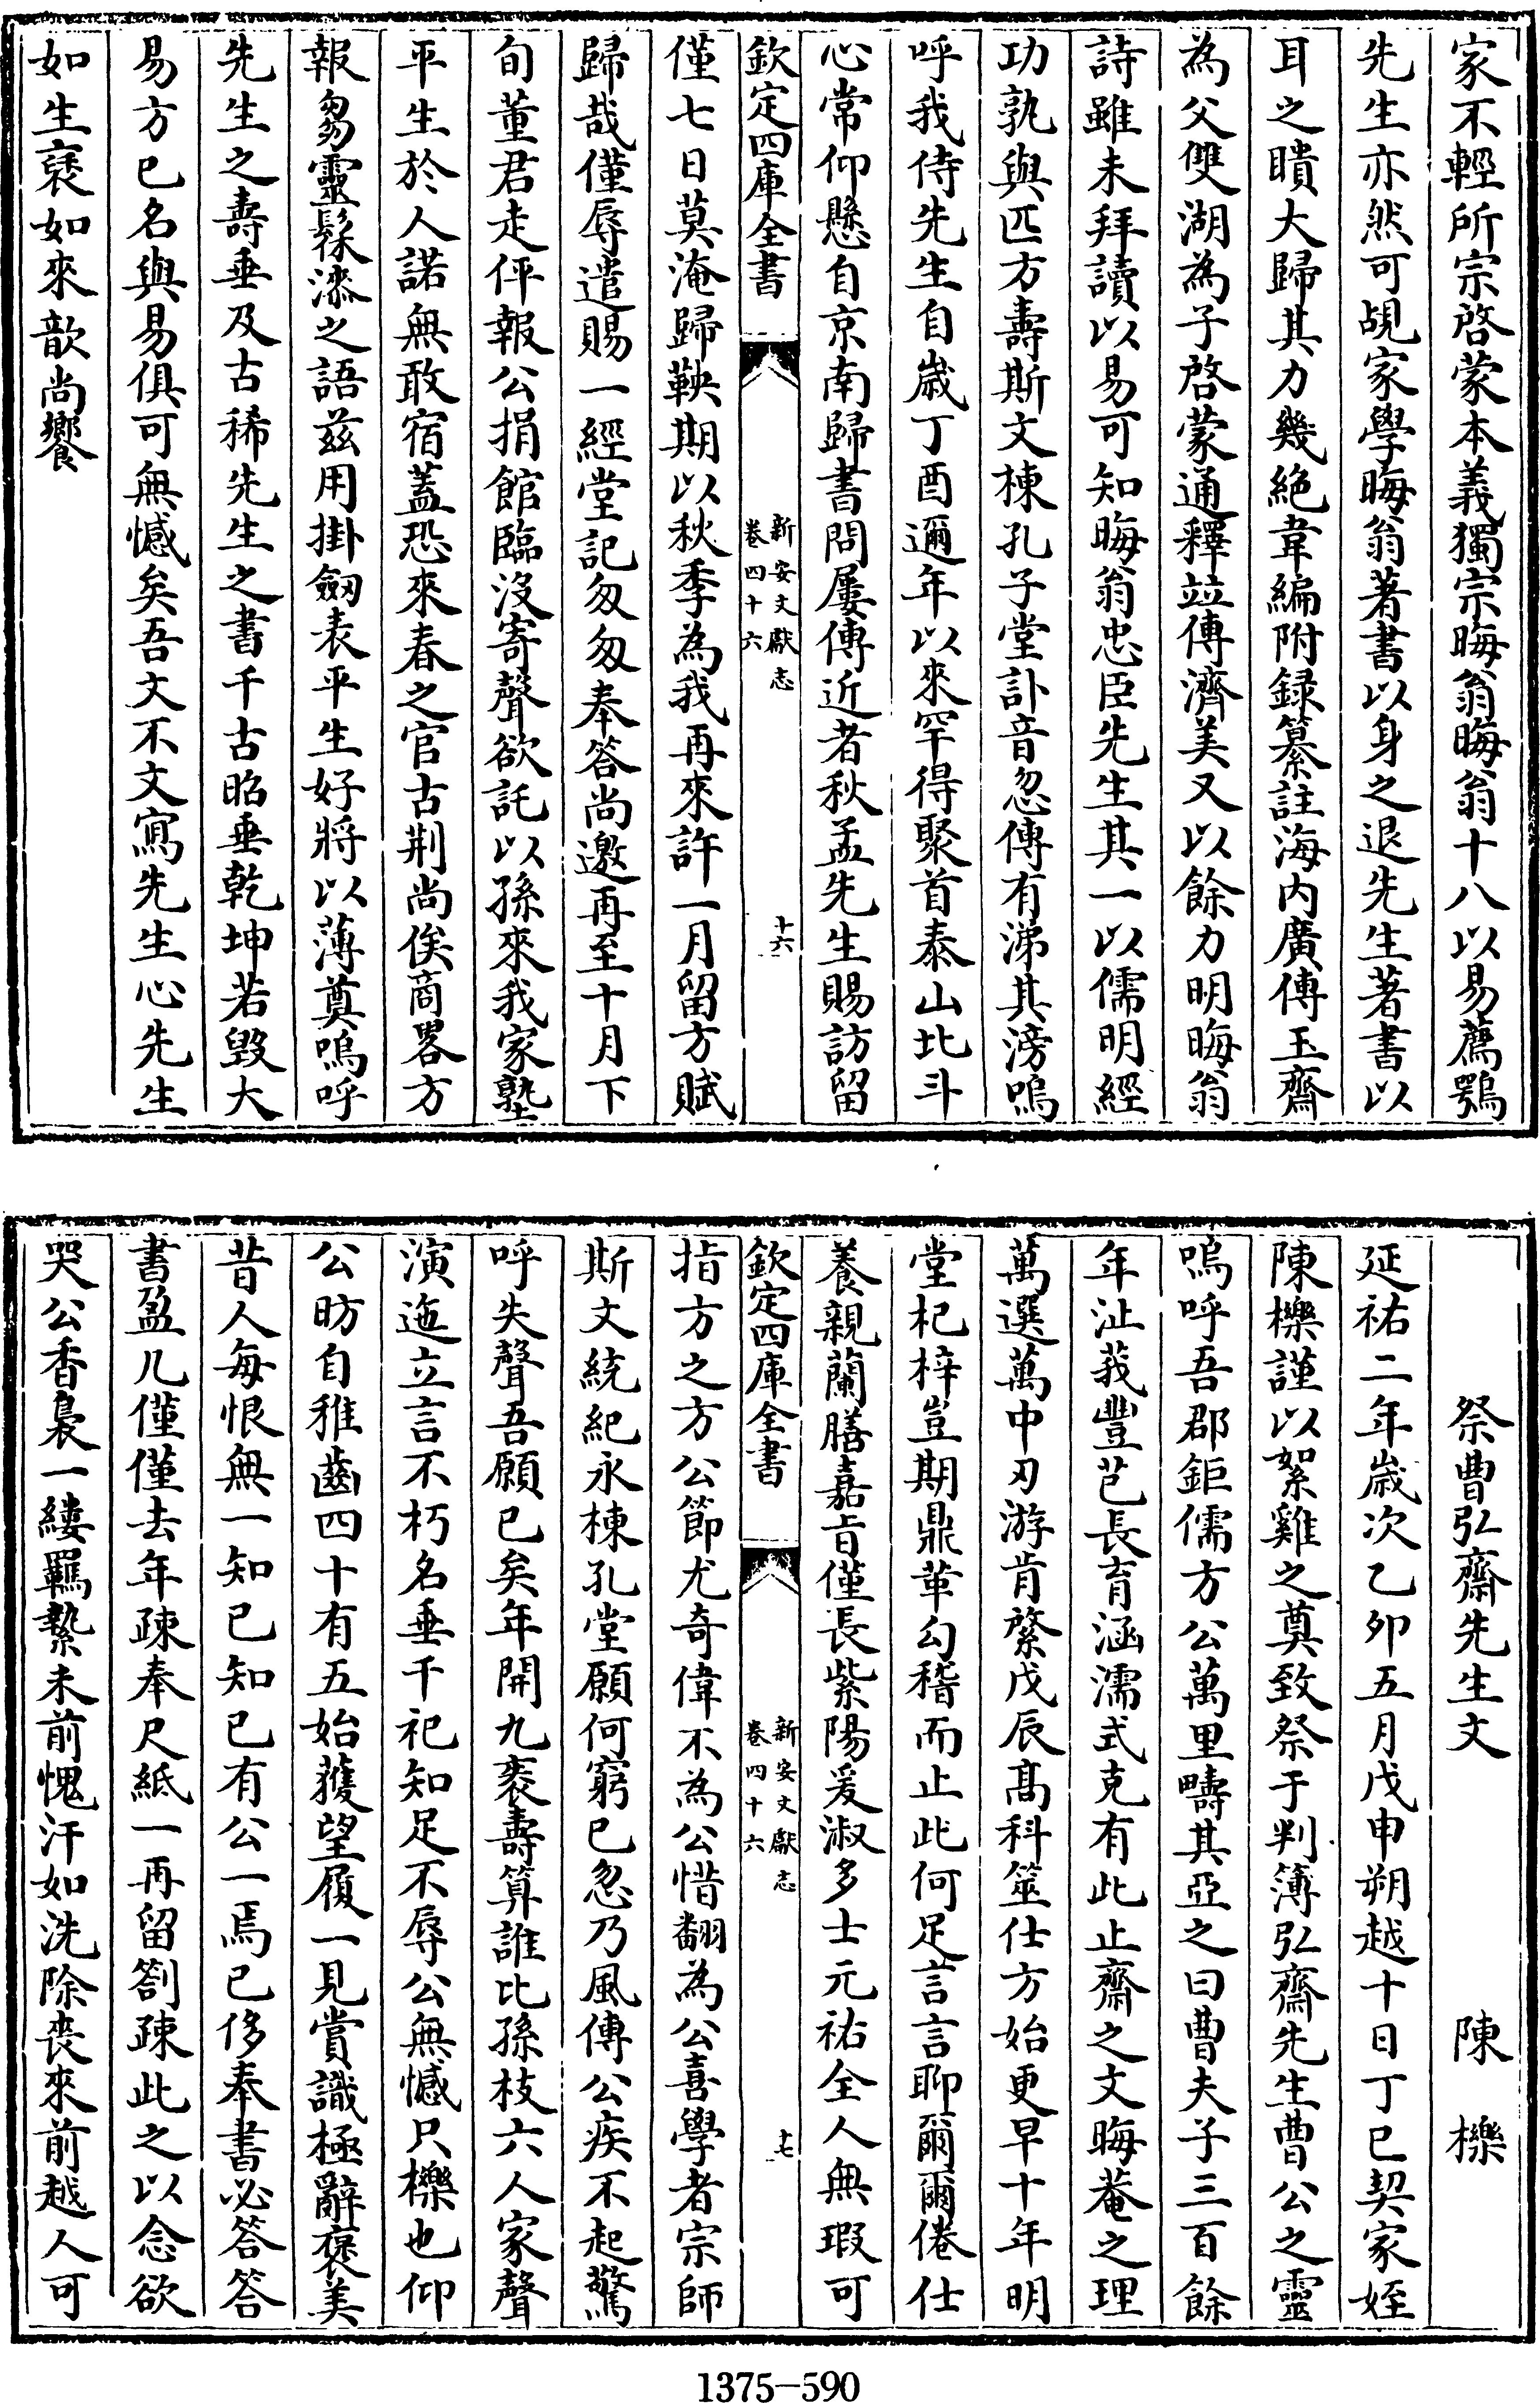 家不輕所宗啓蒙本義獨宗晦翁晦翁十八以易薦鶚
先生亦然可覘家學晦翁著書以身之退先生著書以
耳之聵大歸其力幾絶韋編附録纂註海内廣傳玉齋
為父雙湖為子啓蒙通釋竝傳濟美又以餘力明晦翁
詩雖未拜讀以易可知晦翁忠臣先生其一以儒明經
功孰與匹方壽斯文棟孔子堂訃音忽傳有涕其滂嗚
呼我侍先生自歲丁酉邇年以來罕得聚首泰山北斗
心常仰懸自京南歸書問屢傳近者秋孟先生賜訪留
欽定四庫全書
新安文獻志
卷四十六
十六
僅七日莫淹歸鞅期以秋季為我再來許一月留方賦
歸哉僅辱遣賜一經堂記匆匆奉答尚邀再至十月下
旬董君走伻報公捐館臨沒寄聲欲託以孫來我家塾
平生於人諾無敢宿蓋恐來春之官古荆尚俟商畧方
報芻靈髹漆之語茲用掛劒表平生好將以薄奠嗚呼
先生之壽垂及古稀先生之書千古昭垂乾坤若毁大
易方已名與易俱可無憾矣吾文不文寫先生心先生
如生裦如來歆尚饗
祭曹弘齋先生文
陳櫟
延祐二年歲次乙卯五月戊申朔越十日丁巳契家姪
陳櫟謹以絮雞之奠致祭于判簿弘齋先生曹公之靈
嗚呼吾郡鉅儒方公萬里疇其亞之曰曹夫子三百餘
年沚莪豐芑長育涵濡式克有此止齋之文晦菴之理
萬選萬中刃游肯綮戊辰髙科筮仕方始更早十年明
堂杞梓豈期鼎革勾稽而止此何足言言聊爾爾倦仕
養親蘭膳嘉旨僅長紫陽爰淑多士元祐全人無瑕可
欽定四庫全書
新安文獻志
卷四十六
十七
指方之方公節尤奇偉不為公惜翻為公喜學者宗師
斯文統紀永棟孔堂願何窮已忽乃風傳公疾不起驚
呼失聲吾願已矣年開九袠壽算誰比孫枝六人家聲
演迤立言不朽名垂千祀知足不辱公無憾只櫟也仰
公昉自稚齒四十有五始獲望履一見賞識極辭褒美
昔人每恨無一知己知己有公一焉已侈奉書必答答
書盈几僅僅去年疎奉尺紙一再留劄疎此之以念欲
哭公香裊一縷羈縶未前愧汗如洗除喪來前越人可
1375-590